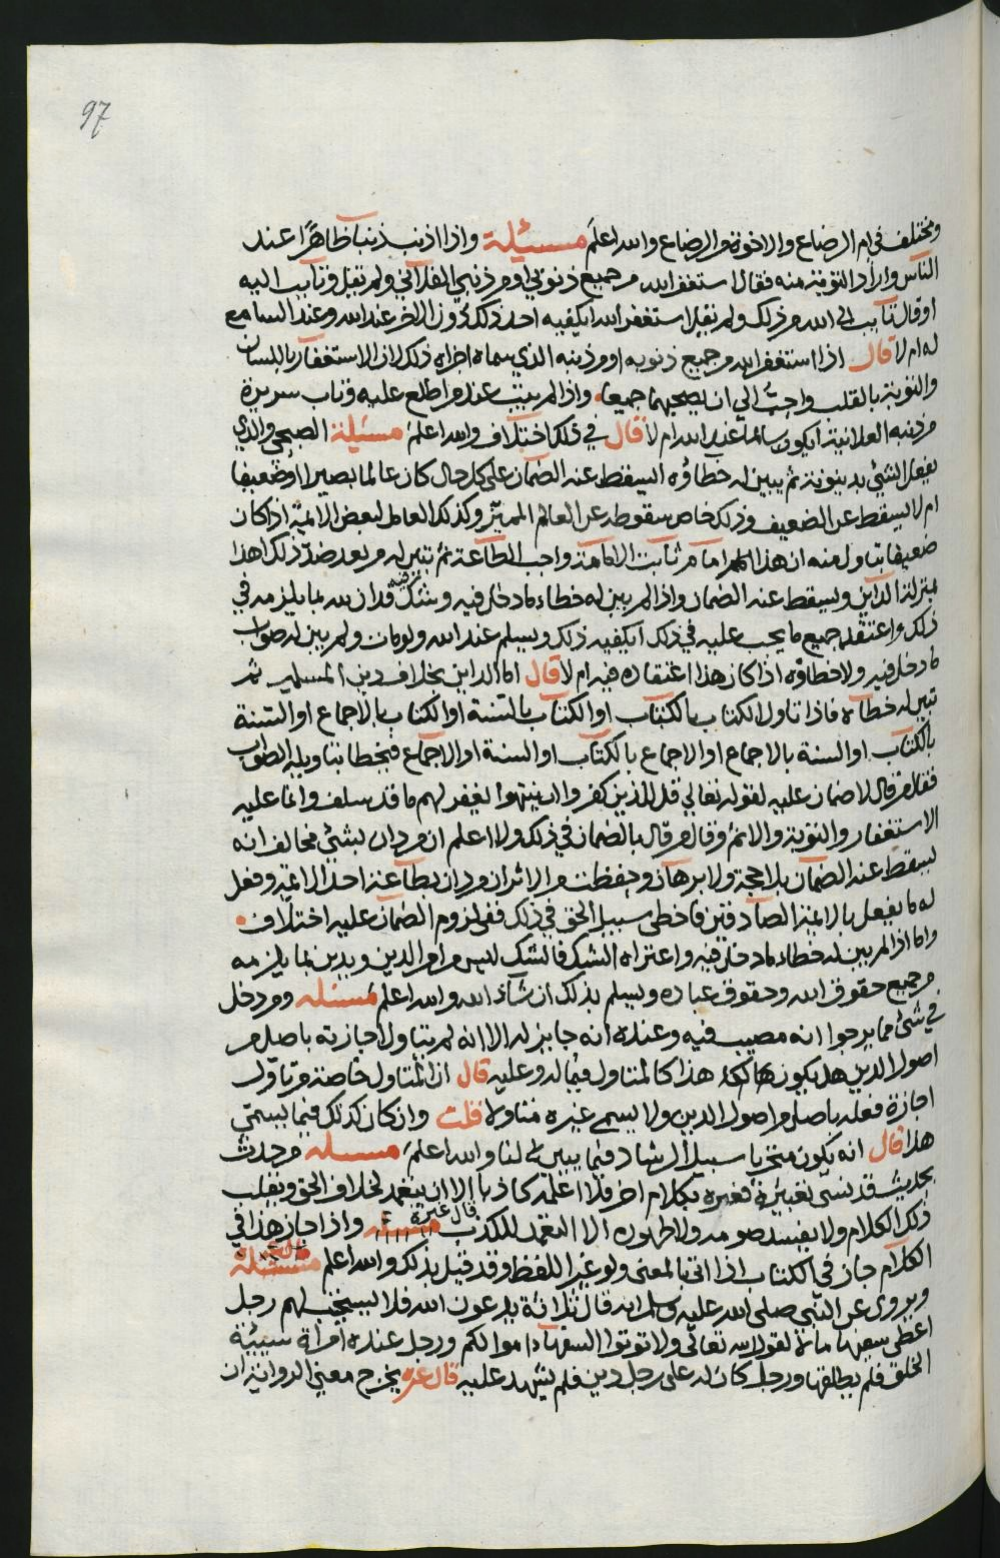 97
ومختلف في ام الرضاع والاخوة من الرضاع والله اعلم مسئيلة واذا اذنب ذنبا ظاهرا عند
الناس واراد التوبة منه فقال استغفر الله من جميع ذنوبي او من ذنبي الفلاني ولم يقل وتايب اليه
او قال تايب الى الله من ذلك ولم يقل استغفر الله ايكفيه احد ذلك دون الاخر عند الله وعند السامع
له ام لا قال اذا استغفر الله من جميع ذنوبه او من ذنبه الذي سماه اجزاه ذلك لان الاستغفار باللسان
والتوبة بالقلب واحب الي ان يصحبهما جميعا واذا لم يتب عند من اطلع عليه وتاب سريرة
من ذنبه العلانية ايكون سالما عند الله ام لا قال في ذلك اختلاف والله اعلم مسئيلة الصبحي والذي
يفعل الشيء بدينونة ثم يبين له خطاؤه ايسقط عنه الضمان على كل حال كان عالما بصيرا او ضعيفا
ام لا يسقط عن الضعيف وذلك خاص سقوطه عن العالم المميز وكذلك العامل لبعض الايمة اذا كان
ضعيفا بتاول منه ان هذا امام ثابت الامامة واجب الطاعة ثم تبين له من بعد ضد ذلك اهذا
بمنزلة الداين ويسقط عنه الضمان واذا لم يبين له خطاء ما دخل فيه وشك فيه فدان لله بما يلزمه في
ذلك واعتقد جميع ما يجب عليه في ذلك ايكفيه ذلك ويسلم عند الله ولو مات ولم يبين له صواب
ما دخل فيه ولا خطاؤه اذا كان هذا اعتقاده فيه ام لا قال اما الداين بخلاف دين المسلمين ثم
تبين له خطاه فاذا تاول الكتاب بالكتاب او الكتاب بالسنة او الكتاب بالاجماع او السنة
بالكتاب او السنة بالاجماع او الاجماع بالكتاب او السنة او الاجماع فيخطا بتاويله الصواب
فقال من قال لا ضمان عليه لقوله تعالى قل للذين كفروا ان ينتهوا يغفر لهم ما قد سلف وانما عليه
الاستغفار والتوبة والاثم وقال من قال بالضمان في ذلك ولا اعلم ان من دان بشيء مخالف انه
يسقط عنه الضمان بلا حجة ولا برهان وحفظت من الاثر ان من دان بطاعة احد الايمة وفعل
له ما يفعل بالايمة الصادقين فاخطى سبيل الحق في ذلك ففي لزوم الضمان عليه اختلاف
واما اذا لم يبين له خطاء ما دخل فيه واعتراه الشك فالشك ليس من امر الدين ويدين بما يلزمه
من جميع حقوق الله وحقوق عباده ويسلم بذلك ان شاء الله والله اعلم مسئله ومن دخل
في شيء مما يرجوا انه مصيب فيه وعنده انه جايز له الا انه لم يتاول اجازته باصل من
اصول الدين هل يكون هذا كالمتاول فيما له وعليه قال ان المتاول خاصة من تاول
اجازة فعله باصل من اصول الدين ولا يسمى غيره متاولا قلت وان كان كذلك فيما يسمى
هذا قال انه يكون متحريا سبيل الرشاد فيما يبين لنا والله اعلم مسئله من حدث
بحديث قد نسي تغييره فغيره بكلام اخر فلا اعلمه كاذبا الا ان يتعمد لخلاف الحق ويقلب
ذلك الكلام ولا يفسد صومه ولا طهوره الا المتعمد للكذب مسئله قال غيره واذا جاز هذا في
الكلام جاز في الكتاب اذا اتى بالمعنى ولو غير اللفظ وقد قيل بذلك والله اعلم مسئلة
ويروى عن النبي صلى الله عليه وسلم انه قال ثلاثة يدعون الله فلا يستجيب لهم رجل
اعطى سفيها ماله لقول الله تعالى ولا توتوا السفهاء اموالكم ورجل عنده امراة سيئة
الخلق فلم يطلقها ورجل كان له على رجل دين فلم يشهد عليه قال غيره يخرج معنى الرواية ان